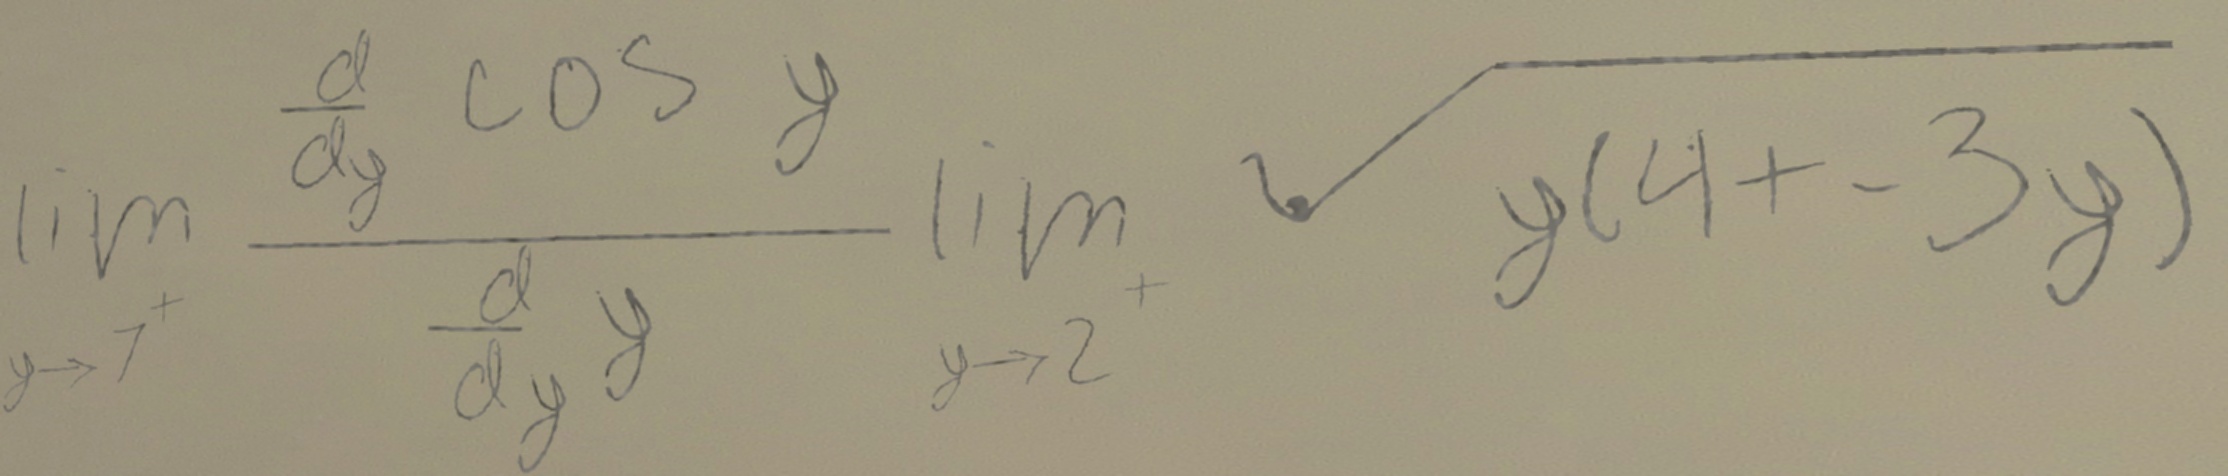 \lim_{y \to 7^+} \frac{\frac{d}{dy} \cos y}{\frac{d}{dy} y} \lim_{y \to 2^+} \sqrt{y(4+-3y)}